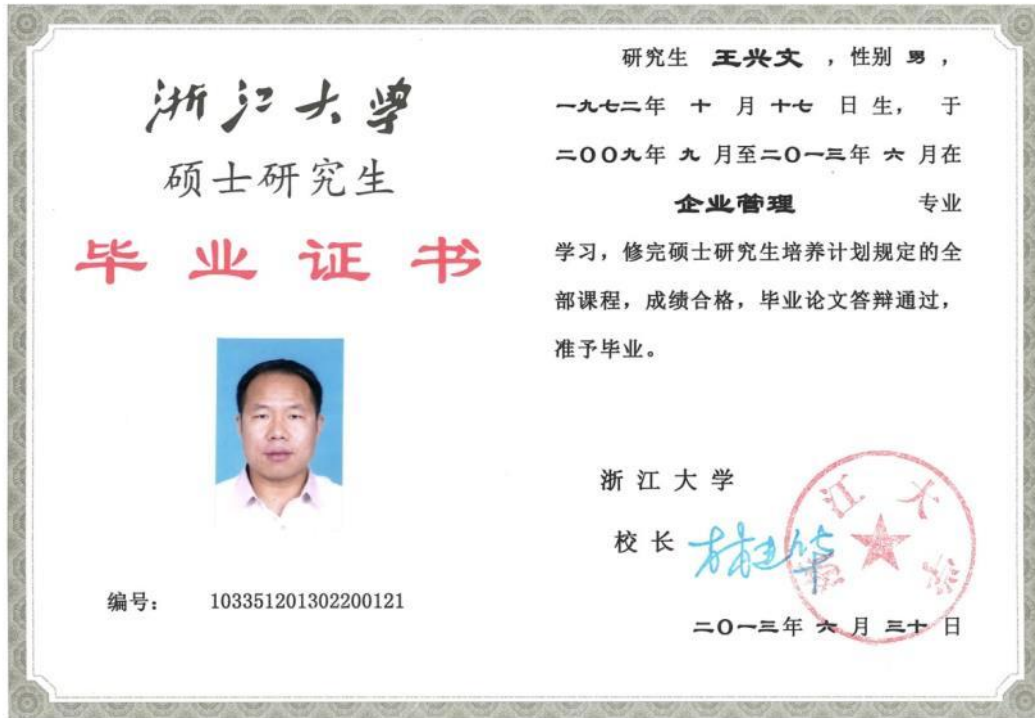 浙江大学
硕士研究生
毕业证书
编号： 103351201302200121
研究生 王兴文 ，性别 男 ，
一九七二年 十 月 十七 日 生， 于
二00九年 九 月至二0一三年 六 月在
企业管理 专业
学习，修完硕士研究生培养计划规定的全
部课程，成绩合格，毕业论文答辩通过，
准予毕业。
浙 江 大 学
校 长
二0一三年 六 月 三十 日
浙江大学